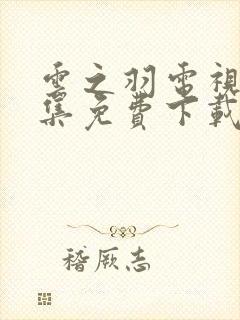 雲之羽電視
集免費下載
稽厥志